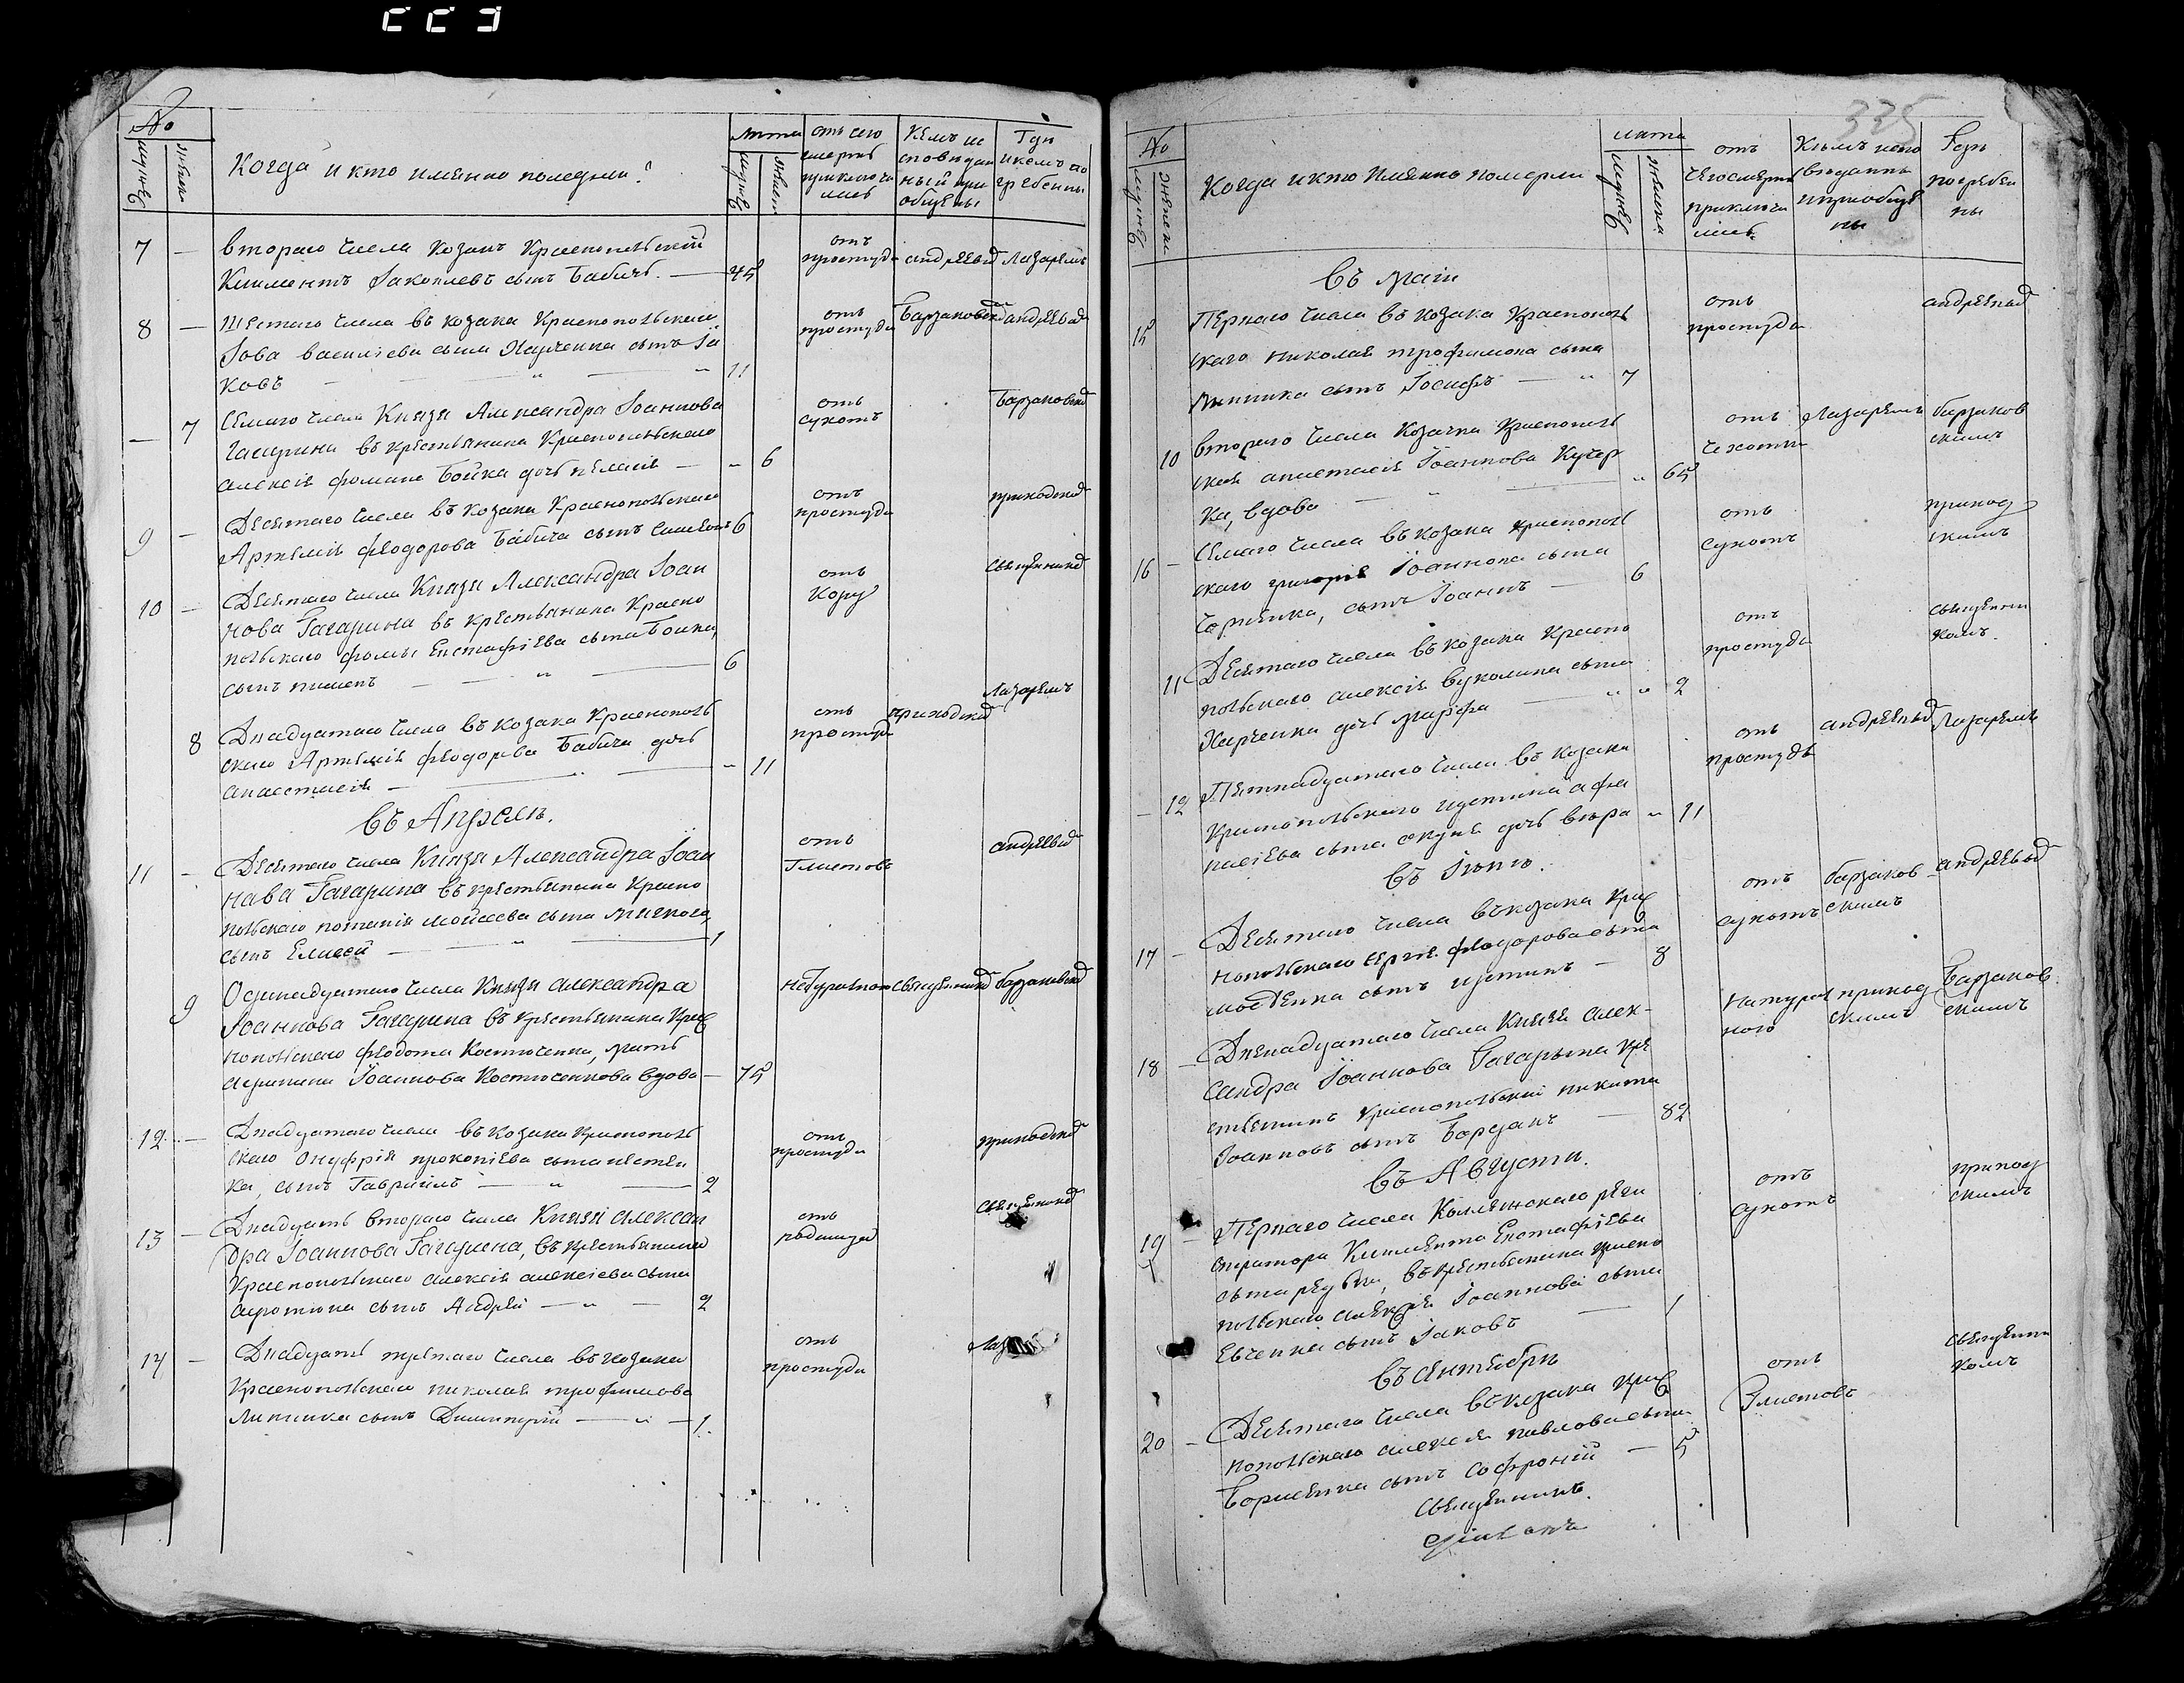 №
Когда и кто именно померли?
лѣта
отъ чего
смерть
приключи
лась
Кемъ ис
повѣдан
ный при
общены
Гдѣ
и кемъ по
гребенны
7 —
втораго числа козакъ Краснопольскій
Климентъ Яковлевъ сынъ Бабичь. — 45
отъ
простуды
андреевы
Лазаремъ
8 —
Шестаго числа въ козака Краснопольскаго
Іова василіева сына Харченка сынъ Іа
ковъ — 11
отъ
простуды
Барзаковск
андреевы
— 7
Семаго числа Князя Александра Іоаннова
Гагарина въ крестьянина Краснопольскаго
алексія Бойка дочь — 6
отъ
сухотъ
Барзаковск
9 —
Десятаго числа въ козака Краснопольскаго
Артемія Феодорова Бабича сынъ Симеонъ 6
отъ
простуды
приходск
10 —
Десятаго числа Князя Александра Іоан
нова Гагарина въ крестьянина Красно
польскаго Фомы Евстафіева сына Бойка,
сынъ пименъ — 6
отъ
Кору
священник
8
Двадцатаго числа въ козака Краснополь
скаго Артемія Феодорова Бабича дочь
анастасія — 11
отъ
простуды
приходск
Лазаремъ
въ Апрѣлѣ.
11 —
Десятаго числа Князя Александра Іоан
нова Гагарина въ крестьянина Красно
польскаго потапія Мойсеева сына
сынъ Елисей — 1
отъ
Глистовъ
андреевы
9
Осмнадцатаго числа Князя Александра
Іоаннова Гагарина въ крестьянина Крас
нопольскаго Федота Костюченка, мать
Іоаннова Костюченкова вдова — 75
натурально
священник
барзаковск
12 —
Двадцатаго числа въ козака Краснополь
скаго Онуфрія прокопіева сына
ка, сынъ Гавріилъ — 2
отъ
простуды
приходск
13 —
Двадцать втораго числа Князя алексан
дра Іоаннова Гагарина, въ крестьянина
Краснопольскаго алексія алексіева сына
сынъ Андрей — 2
отъ
родимца
священник
14 —
Двадцать третяго числа въ козака
Краснопольскаго николая трофимова
Липника сынъ Димитрій — 1.
отъ
простуды
Лаз
335
№
Когда и кто именно померли
лѣта
отъ
чего смерть
приключи
лась.
Кѣмъ испо
вѣданны
и приобще
ны
Гдѣ
погребен
ны
въ маіи
15
Перваго числа въ козака Краснополь
скаго николая трофимова сына
Липника сынъ Іосифъ — 7
отъ
простуды
андреевы
10
втораго числа Козачка Краснополь
ская анастасія Іоаннова Кучер
ка, вдова — 65
отъ
чахотки
Лазаремъ
барзаков
скимъ
16 —
Семаго числа въ козака Краснополь
скаго григорія Іоаннова сына
сынъ Іоаннъ — 6
отъ
сухотъ
приход
скимъ
11
Десятаго числа въ козака Красно
польскаго алексія вуколина сына
Харченка дочь марфа — 2
отъ
простуды
священни
комъ.
— 12
Пятнадцатаго числа въ козака
Краснопольскаго иустина афа
насіева сына дочь вѣра 11
отъ
простудъ
андреевы
Лазаремъ
въ Іюнѣ.
17 —
Десятаго числа въ козака Крас
нопольскаго сергія Феодорова сына
сынъ иустинъ — 8
отъ
сухотъ
барзаков
скимъ
андреевы
18 —
Двенадцатаго числа Князя Алек-
сандра Іоаннова Гагарына кре
стьянинъ Краснопольскій никита
Іоанновъ сынъ — 82
Натурал
ного
приход
скимъ
Барзаков
скимъ
въ Августѣ.
19 —
Перваго числа Колежскаго реги
стратора Климента Евстафіева
сына въ крестьянина Красно
польскаго алексѣя Іоаннова сына
Евченка сынъ Іаковъ — 1
отъ
сухотъ
приход
скимъ
въ сентябрѣ
20 —
Десятаго числа въ козака Крас
нопольскаго алексѣя павлова сына
сынъ софроній — 5
отъ
Глистовъ
священни
комъ
священникъ